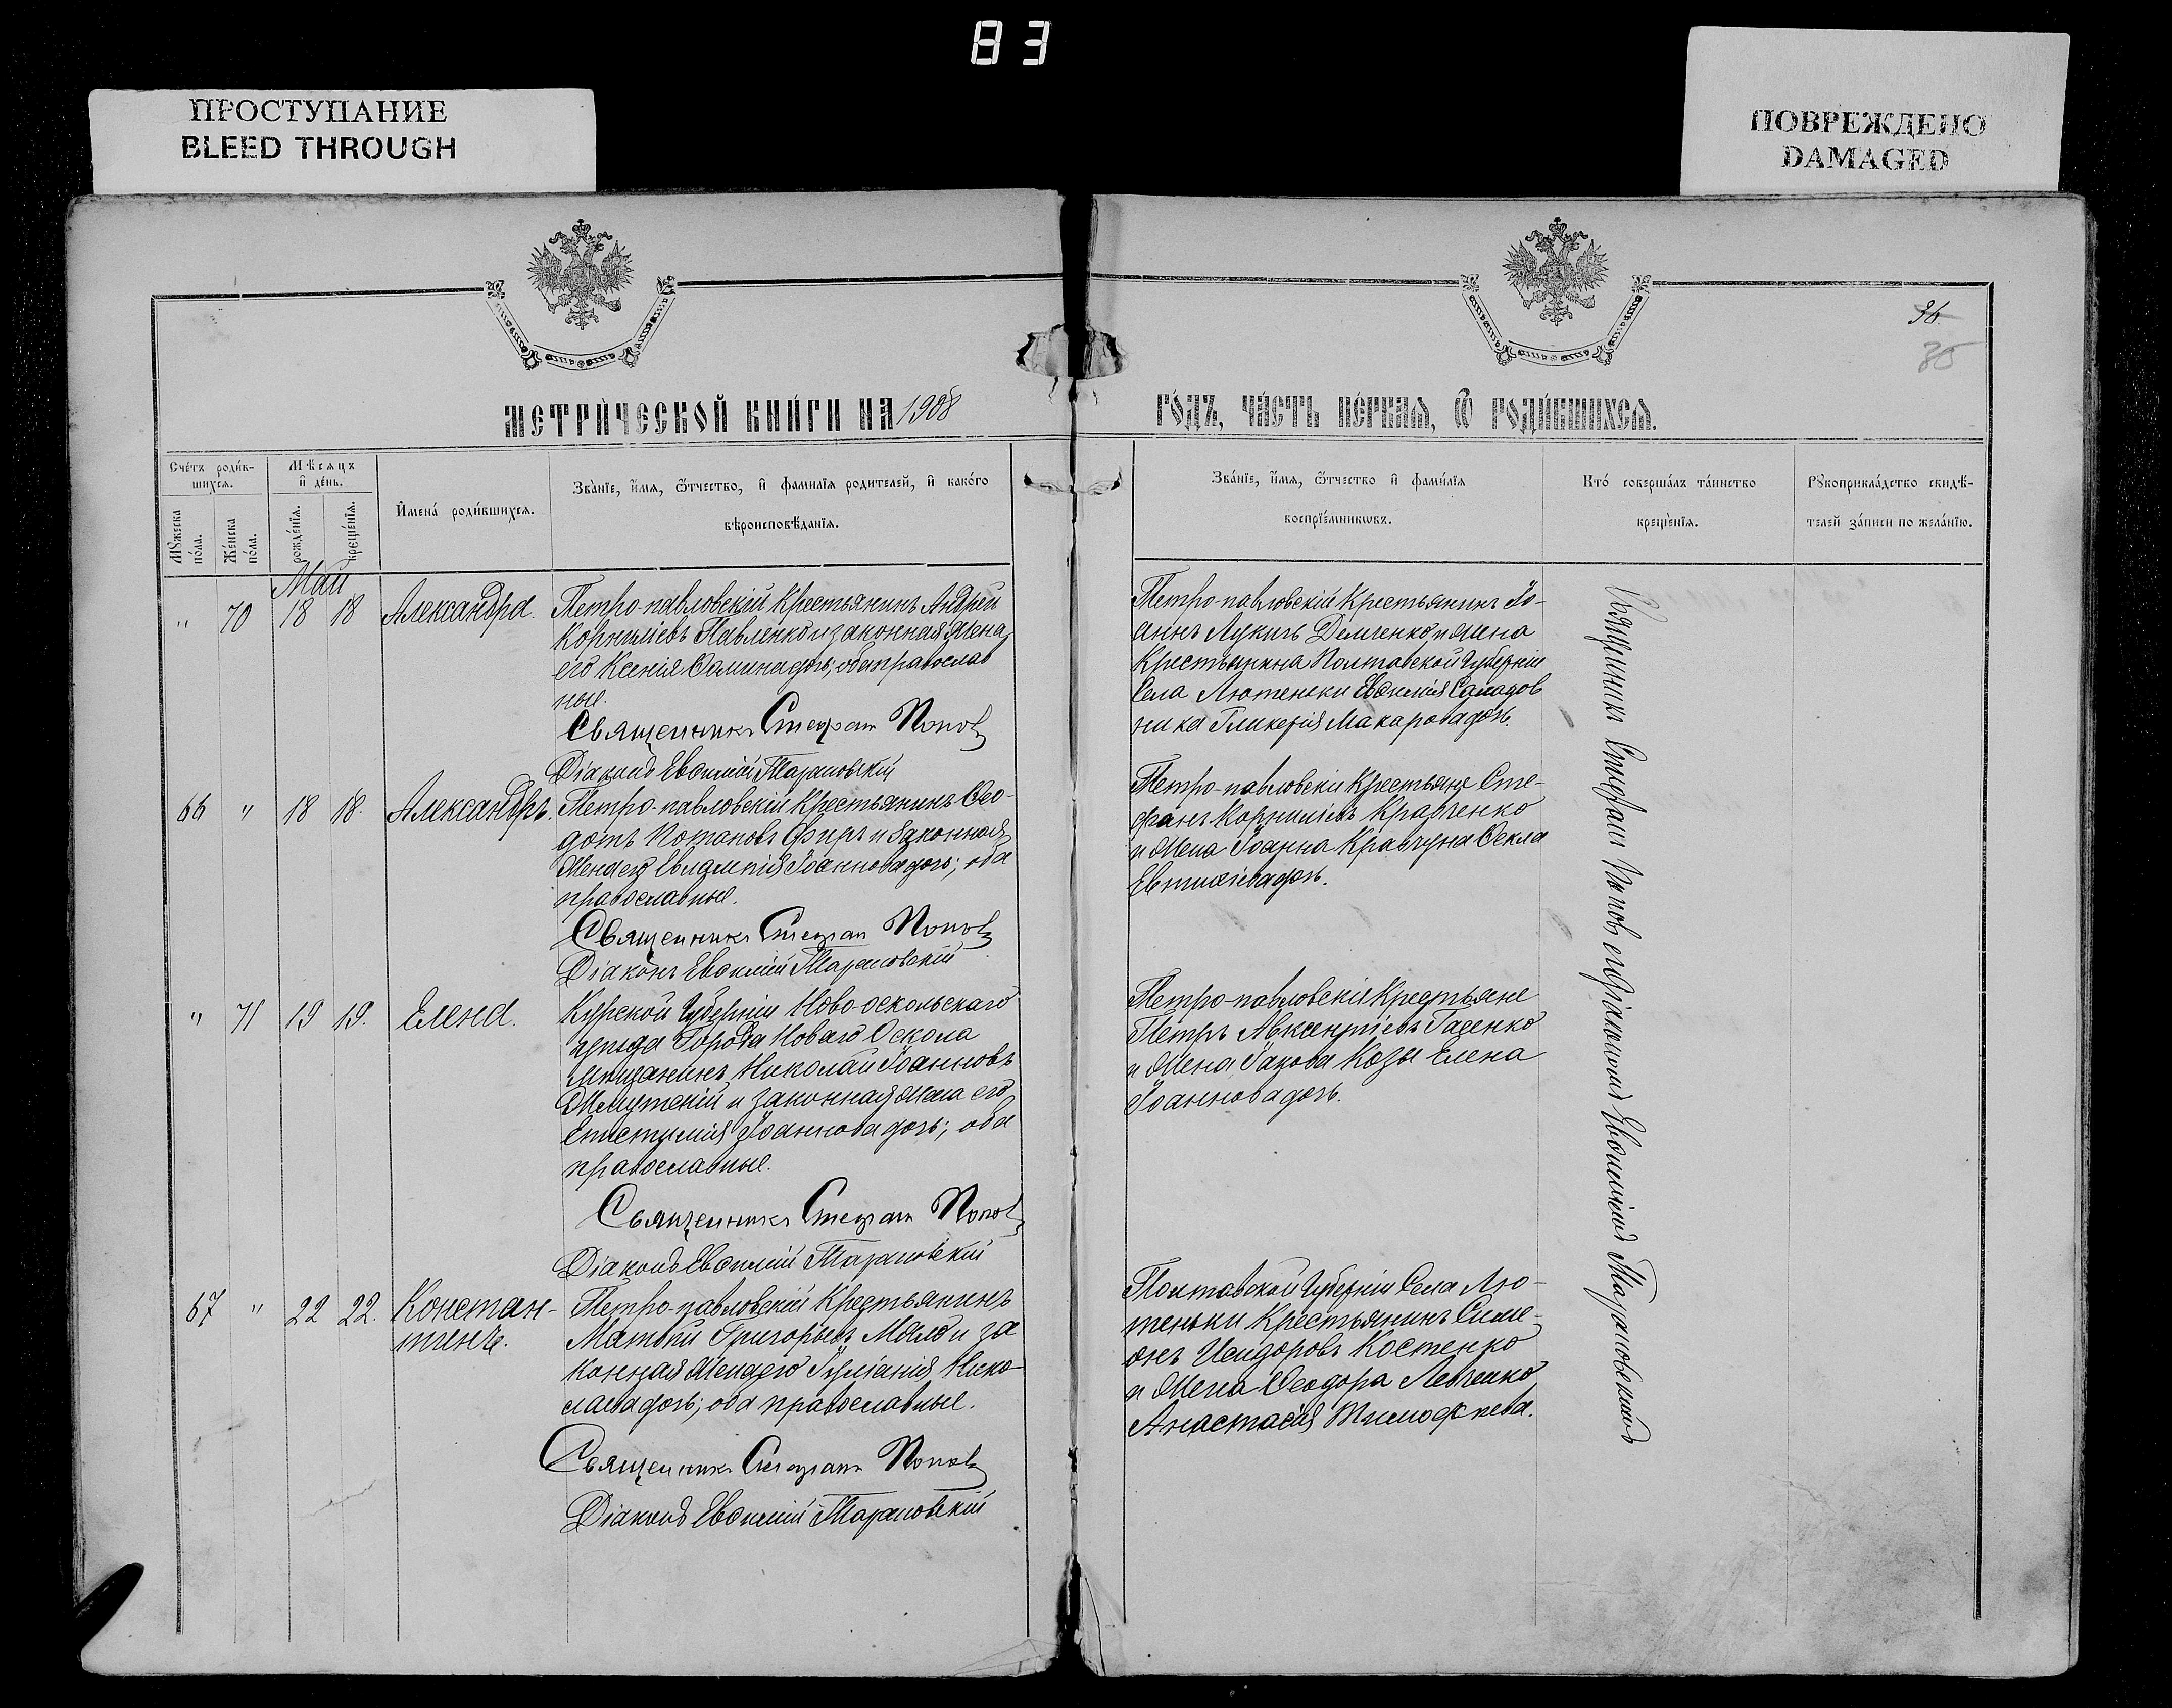 83
ПРОСТУПАНИЕ
BLEED THROUGH
ПОВРЕЖДЕНО
DAMAGED
36.
35
МЕТРИ́ЧЕСКОЙ КНИ́ГИ НА 1908
ГО́ДЪ, ЧА́СТЬ ПЕ́РВАѦ, Ѡ РОДИ́ВШИХСѦ.
Сче́тъ роди́в-
шихсѧ.
Мѣсѧцъ
и҆ де́нь.
И҆мена́ роди́вшихсѧ.
Зва́нїе, и҆́мѧ, ѻ҆́тчество, и҆ фами́лїѧ роди́телей, и҆ како́гѡ
вѣроисповѣ́данїѧ.
Мꙋ́жеска по́ла.
Же́нска по́ла.
рожде́нїѧ.
креще́нїѧ.
Зва́нїе, и҆́мѧ, ѻ҆́тчество и҆ фами́лїѧ
воспрїе́мникѡвъ.
Кто́ соверша́лъ та́инство
креще́нїѧ.
Рꙋкоприкла́дство свидѣ́-
телей за́писи по жела́нїю.
Май
" 70 18 18 Александра.
Петро-павловскій крестьянинъ Андрей
Корниліевъ Павленко и законная жена
его Ксенія дочь; оба православ
ные.
Священникъ Стефанъ Поповъ
Діаконъ Евѳимій Тарановскій
Петро-павловскій крестьянинъ Іо-
аннъ Лукичъ Демченко и жена
крестьянина Полтавской Губерніи
Села Лютеньки Евѳимія Самодов
ника Гликерія Макарова дочь.
66 " 18 18. Александръ.
Петро-павловскій крестьянинъ Ѳео-
дотъ Потаповъ Фиръ и законная
жена его Евлампія Іоаннова дочь; оба
православные.
Священникъ Стефанъ Поповъ
Діаконъ Евѳимій Тарановскій
Петро-павловскіе крестьяне Сте-
фанъ Корниліевъ Кравченко
и жена Іоанна Кравчуна Ѳекла
Евтихіева дочь.
" 71 19 19. Елена.
Курской Губерніи Ново-оскольскаго
уѣзда Города Новаго Оскола
мѣщанинъ Николай Іоанновъ
и законная жена его
Іоаннова дочь; оба
православные.
Священникъ Стефанъ Поповъ
Діаконъ Евѳимій Тарановскій
Петро-павловскіе крестьяне
Петръ Авксентіевъ Гаценко
и жена Іакова Козы Елена
Іоаннова дочь.
67 " 22 22. Констан-
тинъ.
Петро-павловскій крестьянинъ
Матѳій Григорьевъ Мало и за
конная жена его Іуліанія Нико-
лаева дочь; оба православные.
Священникъ Стефанъ Поповъ
Діаконъ Евѳимій Тарановскій
Полтавской Губерніи Села Лю-
теньки крестьянинъ Симе-
онъ Исидоровъ Костенко
и жена Ѳеодора Левченко
Анастасія Тимоѳеева.
Священникъ Стефанъ Поповъ съ діакономъ Евѳиміемъ Тарановскимъ